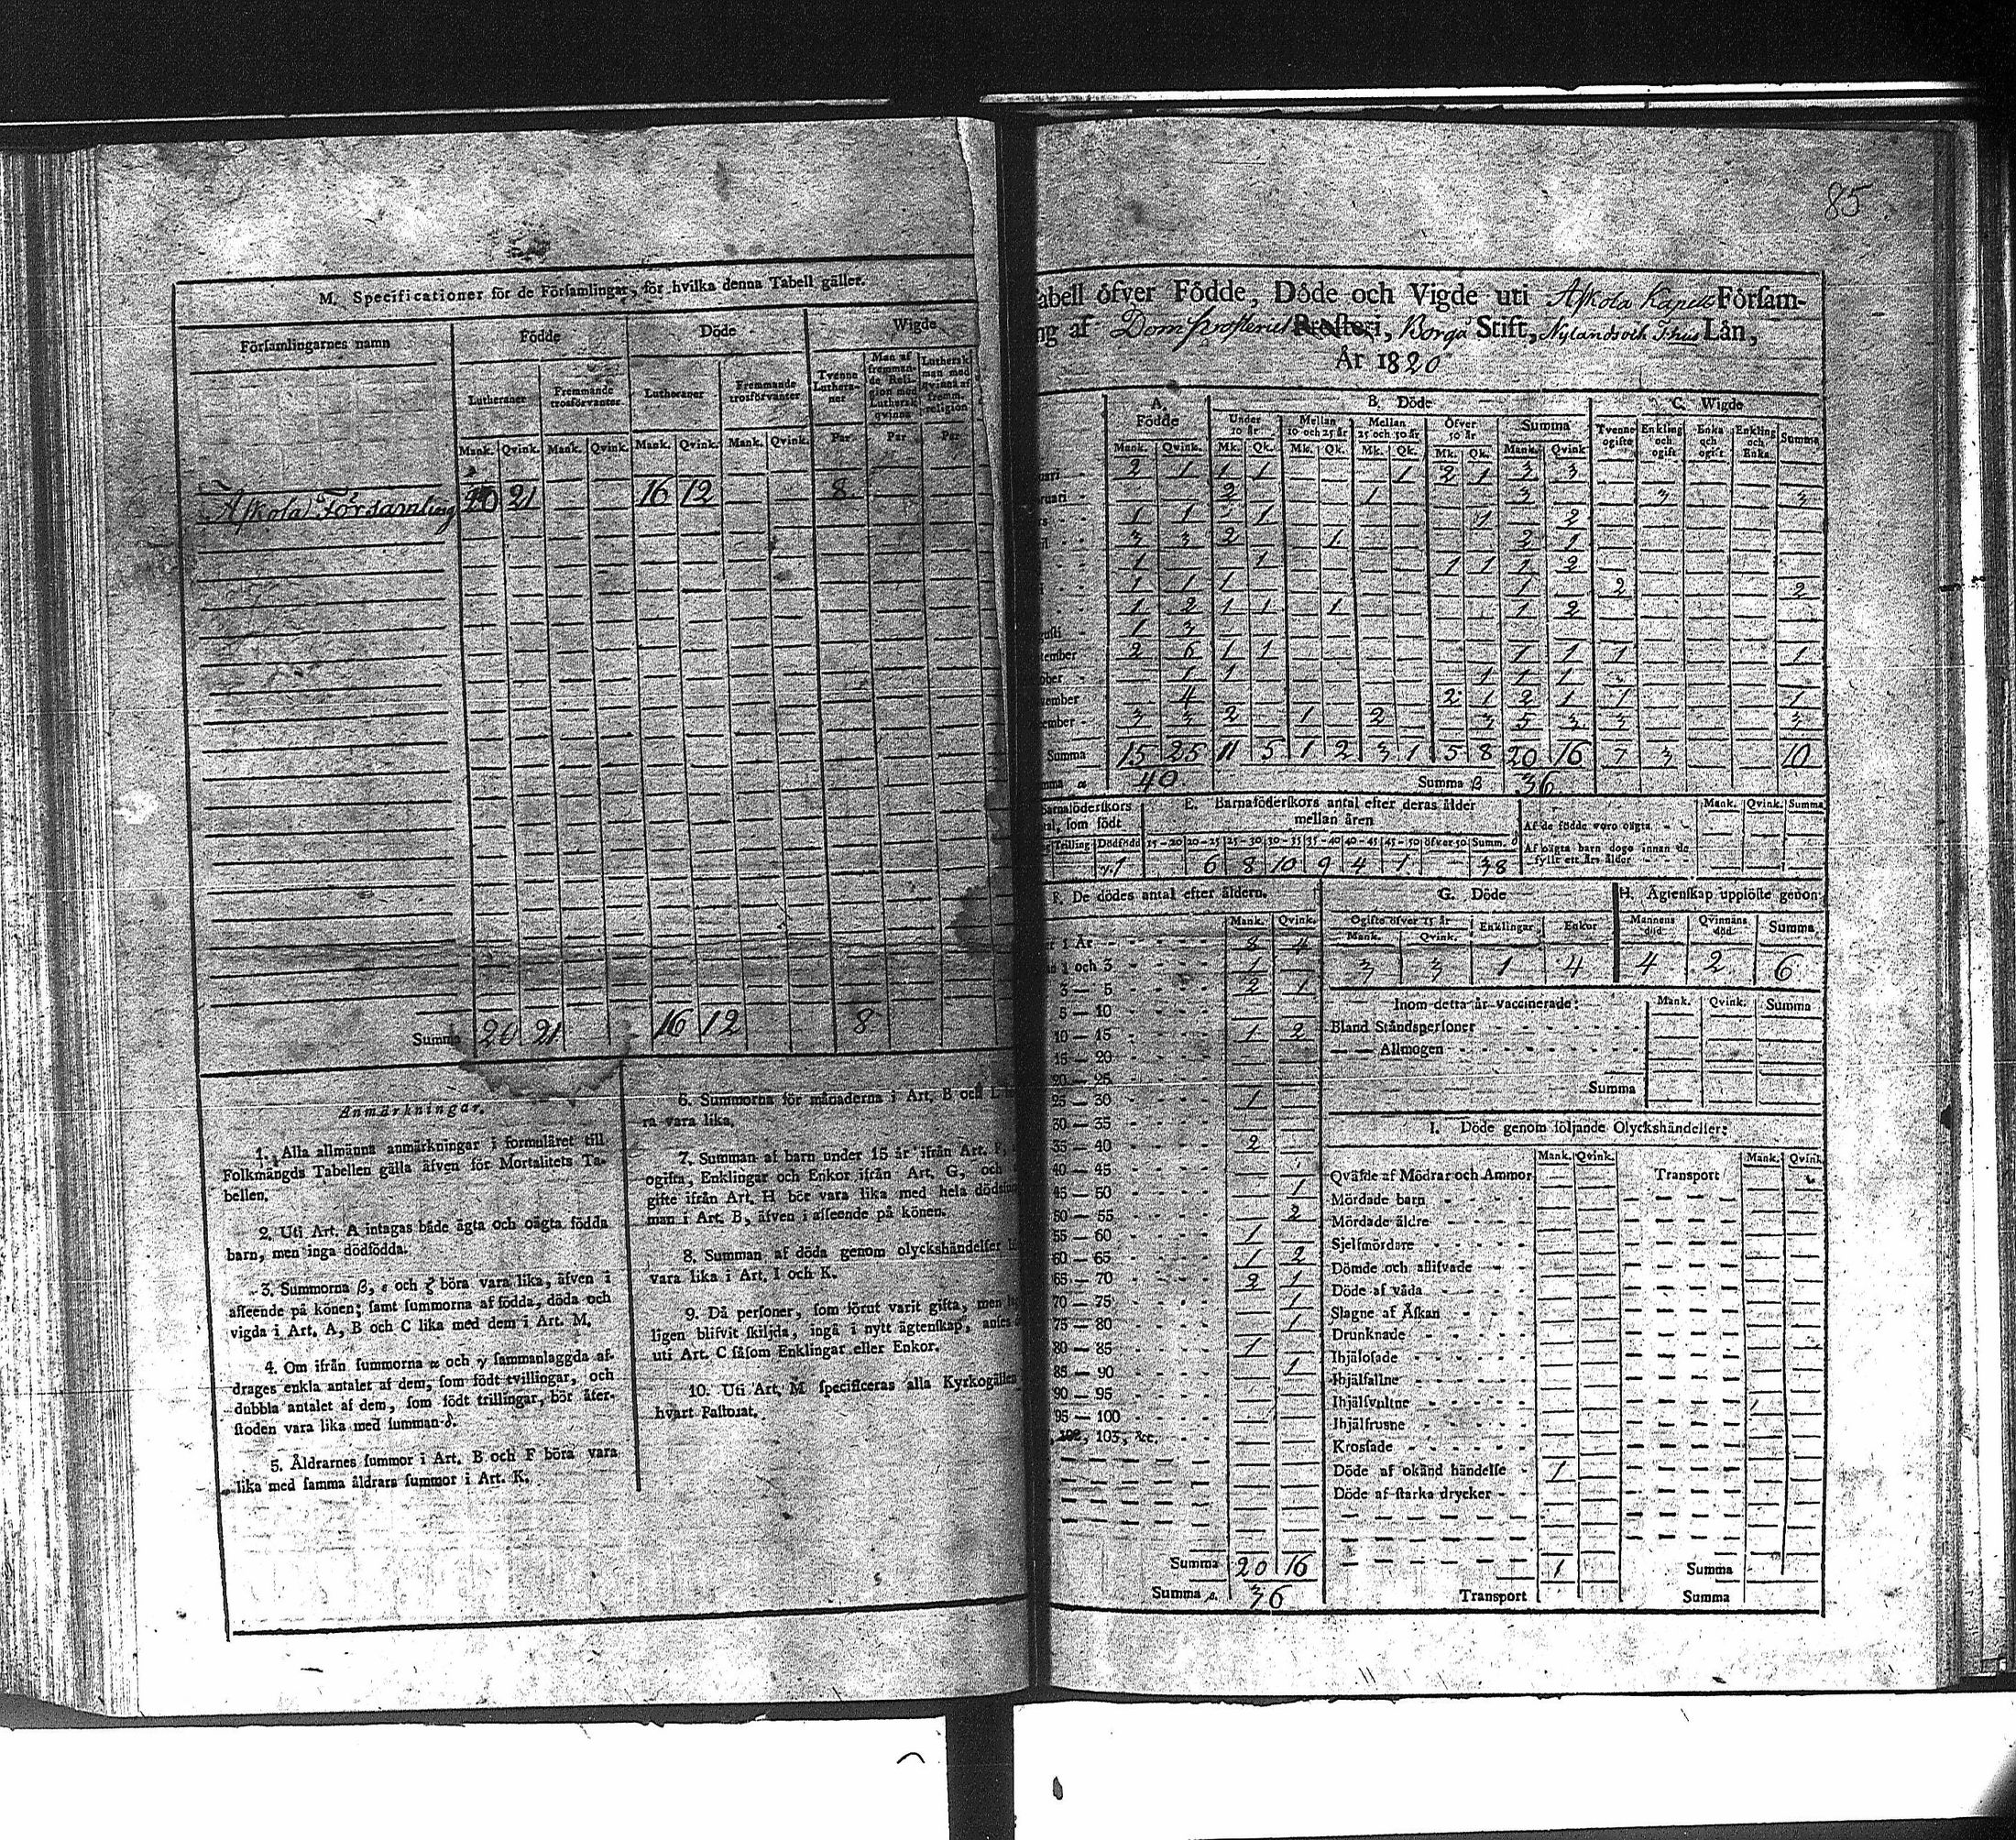 85
M. Specificationer för de Församlingar, för hvilka denna Tabell gäller.
Församlingarnes namn
Födde
Döde
Wigde
Lutheraner
Fremmande trosförvanter
Lutheraner
Fremmande trosförvanter
Tvenne Lutheraner
Man af fremmande Religion med Luthersk qvinna
Luthersk man med qvinna af fremm. religion
Mank. Qvink. Mank. Qvink. Mank. Qvink. Mank. Qvink. Par Par Par
Askola Församling 20 21 16 12 8
Summa 20 21 16 12 8
Anmärkningar.
1. Alla allmänna anmärkningar i formuläret till
Folkmängds Tabellen gälla äfven för Mortalitets Ta-
bellen.
2. Uti Art. A intagas både ägta och oägta födda
barn, men inga dödfödda.
3. Summorna β, ε och ζ böra vara lika, äfven i
afseende på könen; samt summorna af födda, döda och
vigda i Art. A, B och C lika med dem i Art. M.
4. Om ifrån summorna α och γ sammanlaggda af-
drages enkla antalet af dem, som födt tvillingar, och
dubbla antalet af dem, som födt trillingar, bör åter-
stoden vara lika med summan δ.
5. Åldrarnes summor i Art. B och F böra vara
lika med samma åldrars summor i Art. K.
6. Summorna för månaderna i Art. B och L
ra vara lika.
7. Summan af barn under 15 år ifrån Art. F,
ogifta, Enklingar och Enkor ifrån Art. G, och
gifte ifrån Art. H bör vara lika med hela
man i Art. B, äfven i afseende på könen.
8. Summan af döda genom olyckshändelser
vara lika i Art. I och K.
9. Då personer, som förut varit gifta, men
ligen blifvit skiljda, ingå i nytt ägtenskap, anses
uti Art. C såsom Enklingar eller Enkor.
10. Uti Art. M specificeras alla Kyrkogällen
hvart Pastorat.
abell öfver Födde, Döde och Vigde uti Askola Kapell Försam-
ng af Domprosteriet Prosteri, Borgå Stift, Nylands och Thus Län,
År 1820
A. Födde
B. Döde
C. Wigde
Under 10 år
Mellan 10 och 25 år
Mellan 25 och 50 år
Öfver 50 år
Summa
Tvenne ogifte
Enkling och ogift
Enka och ogift
Enkling och Enka
Summa
Mank. Qvink. Mk. Qk. Mk. Qk. Mk. Qk. Mk. Qk. Mank. Qvink
uari 2 1 1 1 1 2 1 3 3
ruari 2 1 3 3 3
rs 1 1 1 1 2
il 3 3 2 1 2 1
1 1 1 1 1 2
i 1 1 1 1 2 2
1 2 1 1 1 1 2
gusti 1 3
tember 2 6 1 1 1 1 1 1
ober 1 1 1 1 1
vember 4 2 1 2 1 1 1
ember 3 3 2 1 2 3 5 3 3 3
Summa 15 25 11 5 1 2 3 1 5 8 20 16 7 3 10
mma α 40 Summa β 36
Barnaföderskors
al, som födt
Trilling Dödfödd
1
E. Barnaföderskors antal efter deras ålder
mellan åren
15-20 20-25 25-30 30-35 35-40 40-45 45-50 öfver 50 Summ. δ
6 8 10 9 4 1 38
Mank. Qvink. Summa
Af de födde voro oägta
Af oägta barn dogo innan de
fyllt ett års ålder
F. De dödes antal efter åldern.
Mank. Qvink.
r 1 År 8 4
1 och 3 1
3 — 5 2 1
5 — 10
10 — 15 1 2
15 — 20
20 — 25
25 — 30 1
30 — 35
35 — 40 2
40 — 45
45 — 50 1
50 — 55 2
55 — 60 1
60 — 65 1 2
65 — 70 2 1
70 — 75 1
75 — 80 1
80 — 85 1
85 — 90 1
90 — 95
95 — 100
, 102, 103, &c.
Summa 20 16
Summa ε. 36
G. Döde
Ogifte öfver 15 år
Enklingar
Enkor
Mank. Qvink.
3 3 1 4
H. Ägtenskap upplöste genom
Mannens död
Qvinnans död
Summa
4 2 6
Inom detta år vaccinerade: Mank. Qvink. Summa
Bland Ståndspersoner
— — Allmogen
Summa
I. Döde genom följande Olyckshändelser:
Mank. Qvink. Mank. Qvink.
Qväfde af Mödrar och Ammor Transport
Mördade barn
Mördade äldre
Sjelfmördare
Dömde och aflifvade
Döde af våda
Slagne af Åskan
Drunknade
Ihjälosade
Ihjälfallne
Ihjälsvultne
Ihjälfrusne
Krossade
Döde af okänd händelse 1
Döde af starka drycker
1 Summa
Transport Summa